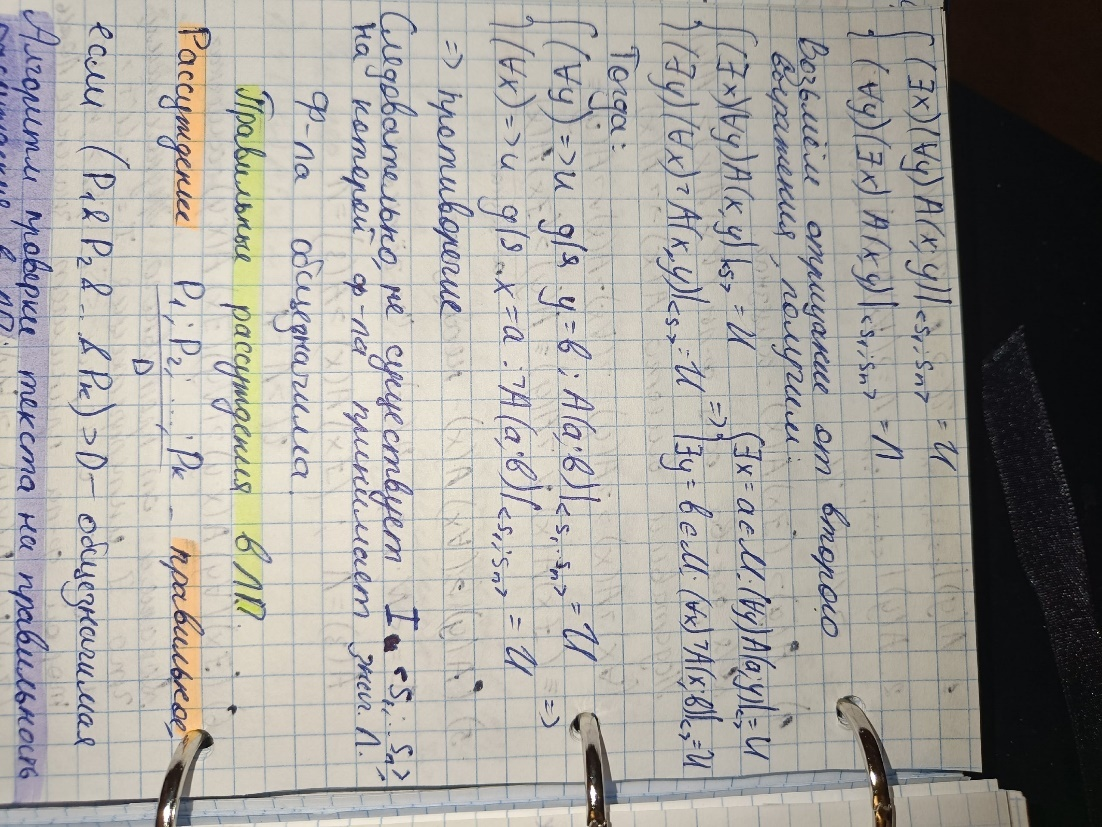 { (∃x)(∀y) A(x,y)|<s₁..sₙ> = И
{ (∀y)(∃x) A(x,y)|<s₁..sₙ> = Л
Возьмём отрицание от второго
выражения, получим:
{ (∃x)(∀y) A(x,y)|<s> = И => { ∃x = a ∈ M: (∀y) A(a,y)|<> = И
{ (∃y)(∀x) ¬A(x,y)|<s> = И { ∃y = b ∈ M: (∀x) ¬A(x,b)|<> = И
Тогда:
{ (∀y) => и для y = b: A(a,b)|<s₁..sₙ> = И =>
{ (∀x) => и для x = a: ¬A(a,b)|<s₁..sₙ> = И
=> противоречие
Следовательно, не существует I и <s₁...sₙ>,
на которой ф-ла принимает знач. Л.
ф-ла общезначима.
Правильные рассуждения в ЛП
Рассуждение P₁; P₂; ...; Pₖ - правильное,
D
если (P₁ & P₂ & .. & Pₖ) ⊃ D - общезначимая
Алгоритм проверки текста на правильность